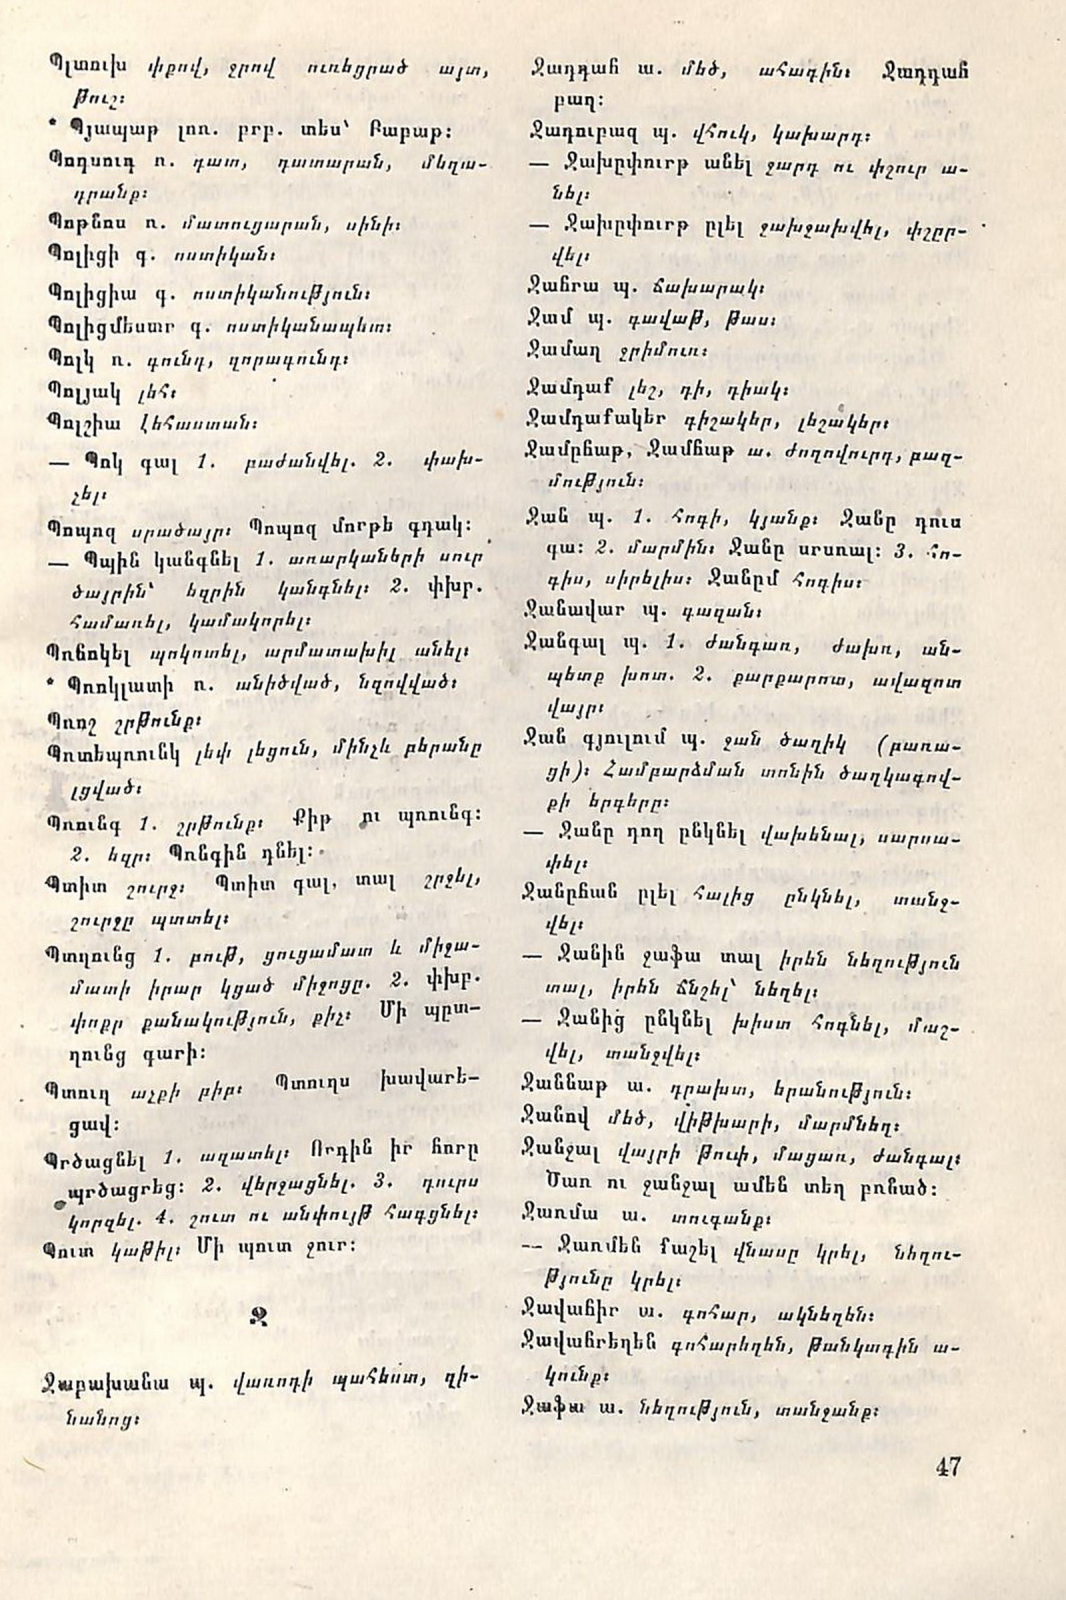 Պլտուխ փքով, ջրով ուռեցրած այտ,
թուշ։
* Պյապաթ լոռ. բրբ. տես՝ Բաբաթ։
Պոդսուդ ռ. դատ, դատարան, մեղա-
դրանք։
Պոթնոս ռ. մատուցարան, սինի։
Պոլիցի գ. ոստիկան։
Պոլիցիա գ. ոստիկանություն։
Պոլիցմեստր գ. ոստիկանապետ։
Պոլկ ռ. գունդ, զորագունդ։
Պոլյակ լեհ։
Պոլշիա Լեհաստան։
— Պոկ գալ 1. բաժանվել. 2. փախ-
չել։
Պոպոզ սրածայր։ Պոպոզ մորթե գդակ։
— Պպին կանգնել 1. առարկաների սուր
ծայրին՝ եզրին կանգնել։ 2. փխբ.
համառել, կամակորել։
Պոճոկել պոկոտել, արմատախիլ անել։
* Պռոկլատի ռ. անիծված, նզովված։
Պռոշ շրթունք։
Պոտեպռունկ լեփ լեցուն, մինչև բերանը
լցված։
Պռունգ 1. շրթունք։ Քիթ ու պռունգ։
2. եզր։ Պռնգին դնել։
Պտիտ շուրջ։ Պտիտ գալ, տալ շրջել,
շուրջը պտտել։
Պտղունց 1. բութ, ցուցամատ և միջա-
մատի իրար կցած միջոցը. 2. փխբ.
փոքր քանակություն, քիչ։ Մի պըտ-
ղունց գարի։
Պտուղ աչքի բիբ։ Պտուղս խավարե-
ցավ։
Պրծացնել 1. ազատել։ Որդին իր հորը
պրծացրեց։ 2. վերջացնել. 3. դուրս
կորզել. 4. շուտ ու անփույթ հագցնել։
Պուտ կաթիլ։ Մի պուտ ջուր։
Ջ
Ջաբախանա պ. վառոդի պահեստ, զի-
նանոց։
Ջադդահ ա. մեծ, ահագին։ Ջադդահ
բաղ։
Ջադուբազ պ. վհուկ, կախարդ։
— Ջախըփուրթ անել ջարդ ու փշուր ա-
նել։
— Ջախըփուրթ ըլել ջախջախվել, փշըր-
վել։
Ջահրա պ. ճախարակ։
Ջամ պ. գավաթ, թաս։
Ջամաղ ջրիմուռ։
Ջամդաք լեշ, դի, դիակ։
Ջամդաքակեր գիշակեր, լեշակեր։
Ջամըհաթ, Ջամհաթ ա. ժողովուրդ, բազ-
մություն։
Ջան պ. 1. հոգի, կյանք։ Ջանը դուս
գա։ 2. մարմին։ Ջանը սրսռալ։ 3. հո-
գիս, սիրելիս։ Ջանըմ հոգիս։
Ջանավար պ. գազան։
Ջանգալ պ. 1. ժանգառ, ժախռ, ան-
պետք խոտ. 2. քարքարոտ, ավազոտ
վայր։
Ջան գյուլում պ. ջան ծաղիկ (բառա-
ցի)։ Համբարձման տոնին ծաղկագով-
քի երգերը։
— Ջանը դող ընկնել վախենալ, սարսա-
փել։
Ջանըհան ըլել հալից ընկնել, տանջ-
վել։
— Ջանին ջաֆա տալ իրեն նեղություն
տալ, իրեն ճնշել՝ նեղել։
— Ջանից ընկնել խիստ հոգնել, մաշ-
վել, տանջվել։
Ջաննաթ ա. դրախտ, երանություն։
Ջանով մեծ, վիթխարի, մարմնեղ։
Ջանջալ վայրի թուփ, մացառ, ժանգալ։
Ծառ ու ջանջալ ամեն տեղ բռնած։
Ջառմա ա. տուգանք։
— Ջառմեն քաշել վնասը կրել, նեղու-
թյունը կրել։
Ջավահիր ա. գոհար, ակնեղեն։
Ջավահրեղեն գոհարեղեն, թանկագին ա-
կունք։
Ջաֆա ա. նեղություն, տանջանք։
47